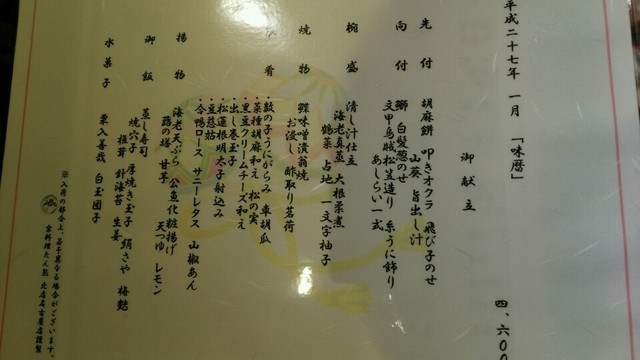 平成二十七年 一月 「味暦」
御献立
四、六〇〇
先付 胡麻餅 叩きオクラ 飛び子のせ
山葵 旨出し汁
向付 鰤 白髪葱のせ
文甲烏賊松笠造り 糸うに飾り
あしらい一式
椀盛 清し汁仕立
海老真薯 大根柔煮
鶴菜 占地 一文字柚子
焼物 鰆味噌漬翁焼
お浸し 酢取り茗荷
肴 ・数の子うにがらみ 車胡瓜
・菜種胡麻和え 松の実
・黒豆クリームチーズ和え
・出し巻玉子
・松蓮根明太子射込み
・豆慈姑
・合鴨ロース サニーレタス 山椒あん
揚物 海老天ぷら 公魚化粧揚げ
蕗の薹 甘草 天つゆ レモン
御飯 蒸し寿司
焼穴子 厚焼き玉子 絹さや 梅麩
椎茸 針海苔 生姜
水菓子 栗入善哉 白玉団子
※入荷の都合上、若干異なる場合がございます。
京料理たん熊 北店名古屋店謹製